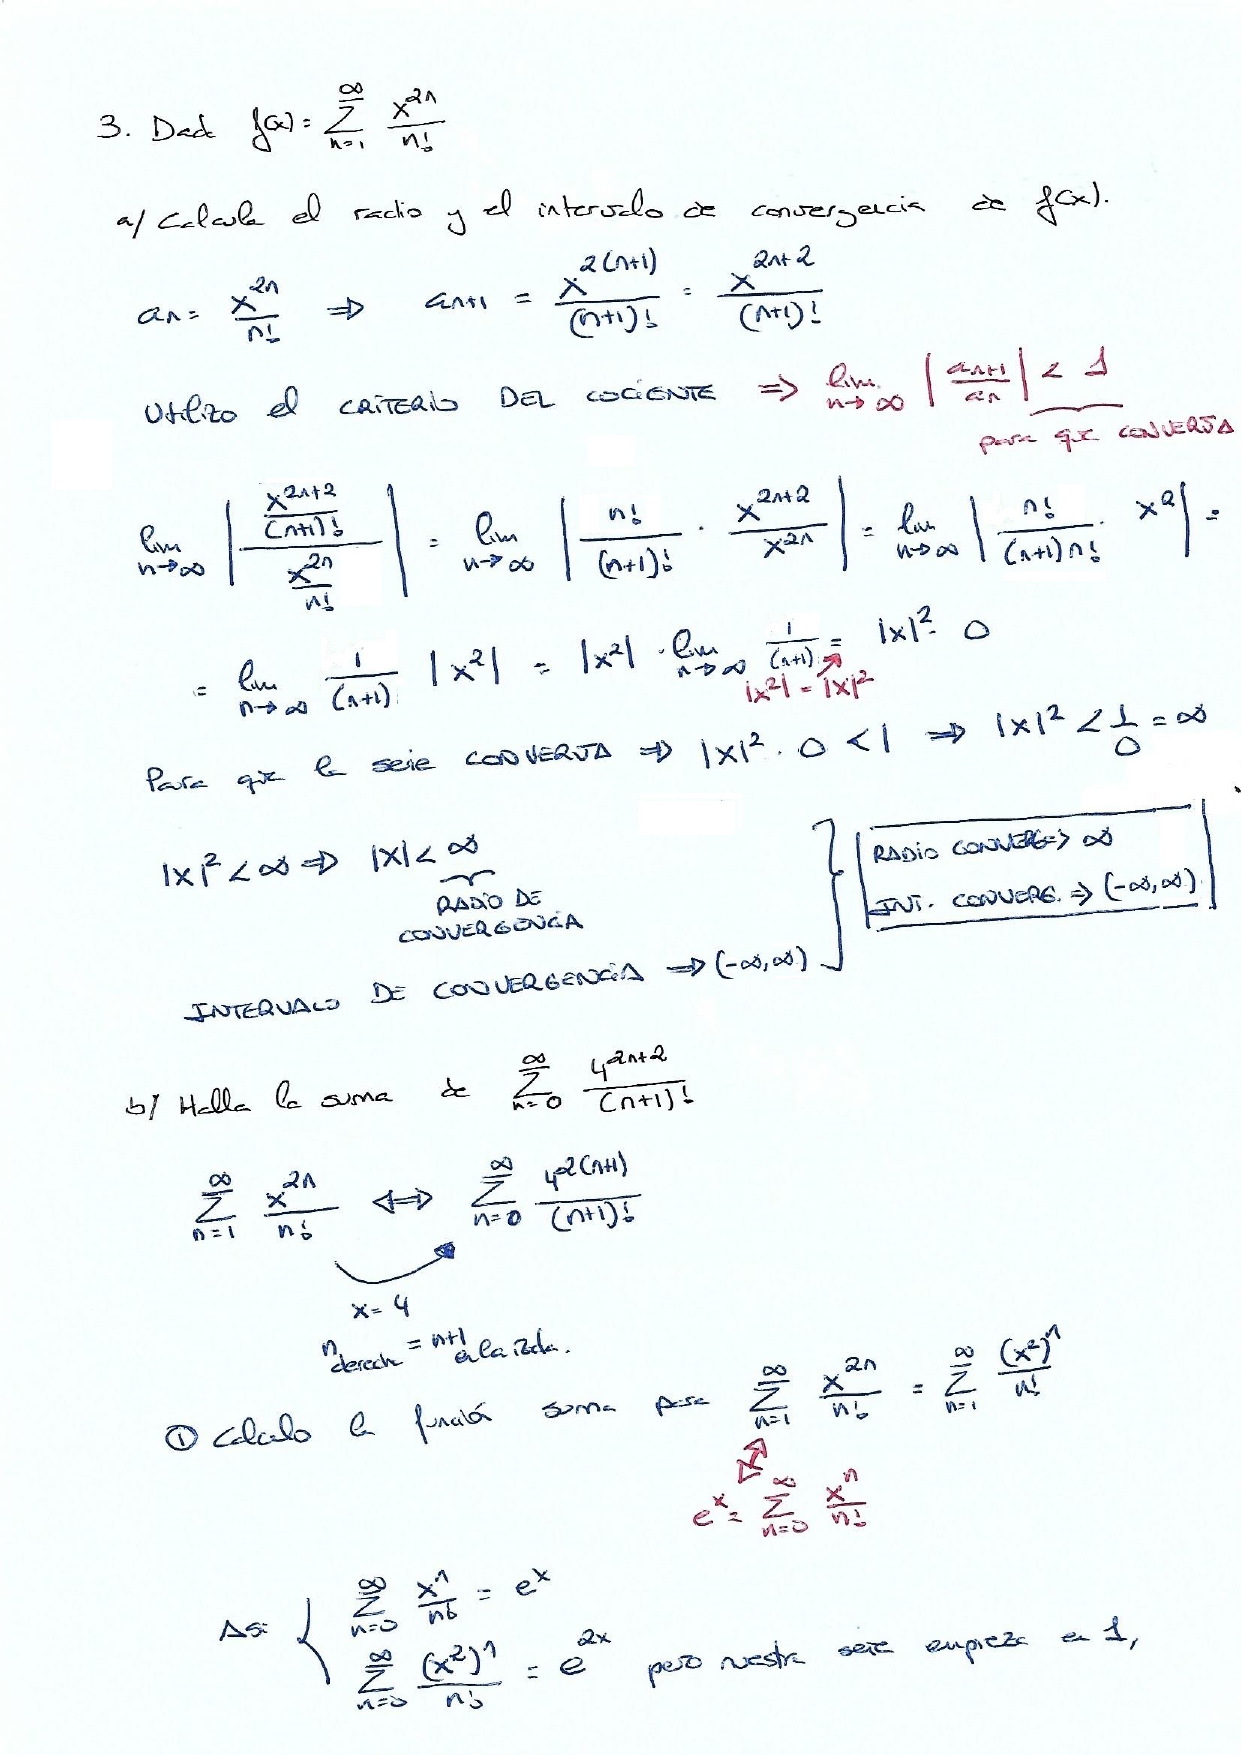 3. Dada f(x) = ∑_{n=1}^{∞} x^{2n}/n!
a/ Calcula el radio y el intervalo de convergencia de f(x).
a_n = x^{2n}/n! ⇒ a_{n+1} = x^{2(n+1)}/(n+1)! = x^{2n+2}/(n+1)!
Utilizo el CRITERIO DEL COCIENTE ⇒ lim_{n→∞} |a_{n+1}/a_n| < 1
para que CONVERJA
lim_{n→∞} |(x^{2n+2}/(n+1)!)/(x^{2n}/n!)| = lim_{n→∞} |n!/(n+1)! · x^{2n+2}/x^{2n}| = lim_{n→∞} |n!/((n+1)n!) · x^2| =
= lim_{n→∞} 1/(n+1) |x^2| = |x^2| · lim_{n→∞} 1/(n+1) = |x|^2 · 0
|x^2| = |x|^2
Para que la serie CONVERJA ⇒ |x|^2 · 0 < 1 ⇒ |x|^2 < 1/0 = ∞
|x|^2 < ∞ ⇒ |x| < ∞
RADIO DE
CONVERGENCIA
RADIO CONVERG ⇒ ∞
INT. CONVERG. ⇒ (-∞,∞)
INTERVALO DE CONVERGENCIA ⇒ (-∞,∞)
b/ Halla la suma de ∑_{n=0}^{∞} 4^{2n+2}/(n+1)!
∑_{n=1}^{∞} x^{2n}/n! ⇔ ∑_{n=0}^{∞} 4^{2(n+1)}/(n+1)!
x = 4
n derecha = n+1 en la izda.
① Calculo la función suma para ∑_{n=1}^{∞} x^{2n}/n! = ∑_{n=1}^{∞} (x^2)^n/n!
e^x = ∑_{n=0}^{∞} x^n/n!
Así { ∑_{n=0}^{∞} x^n/n! = e^x
∑_{n=0}^{∞} (x^2)^n/n! = e^{2x} pero nuestra serie empieza en 1,